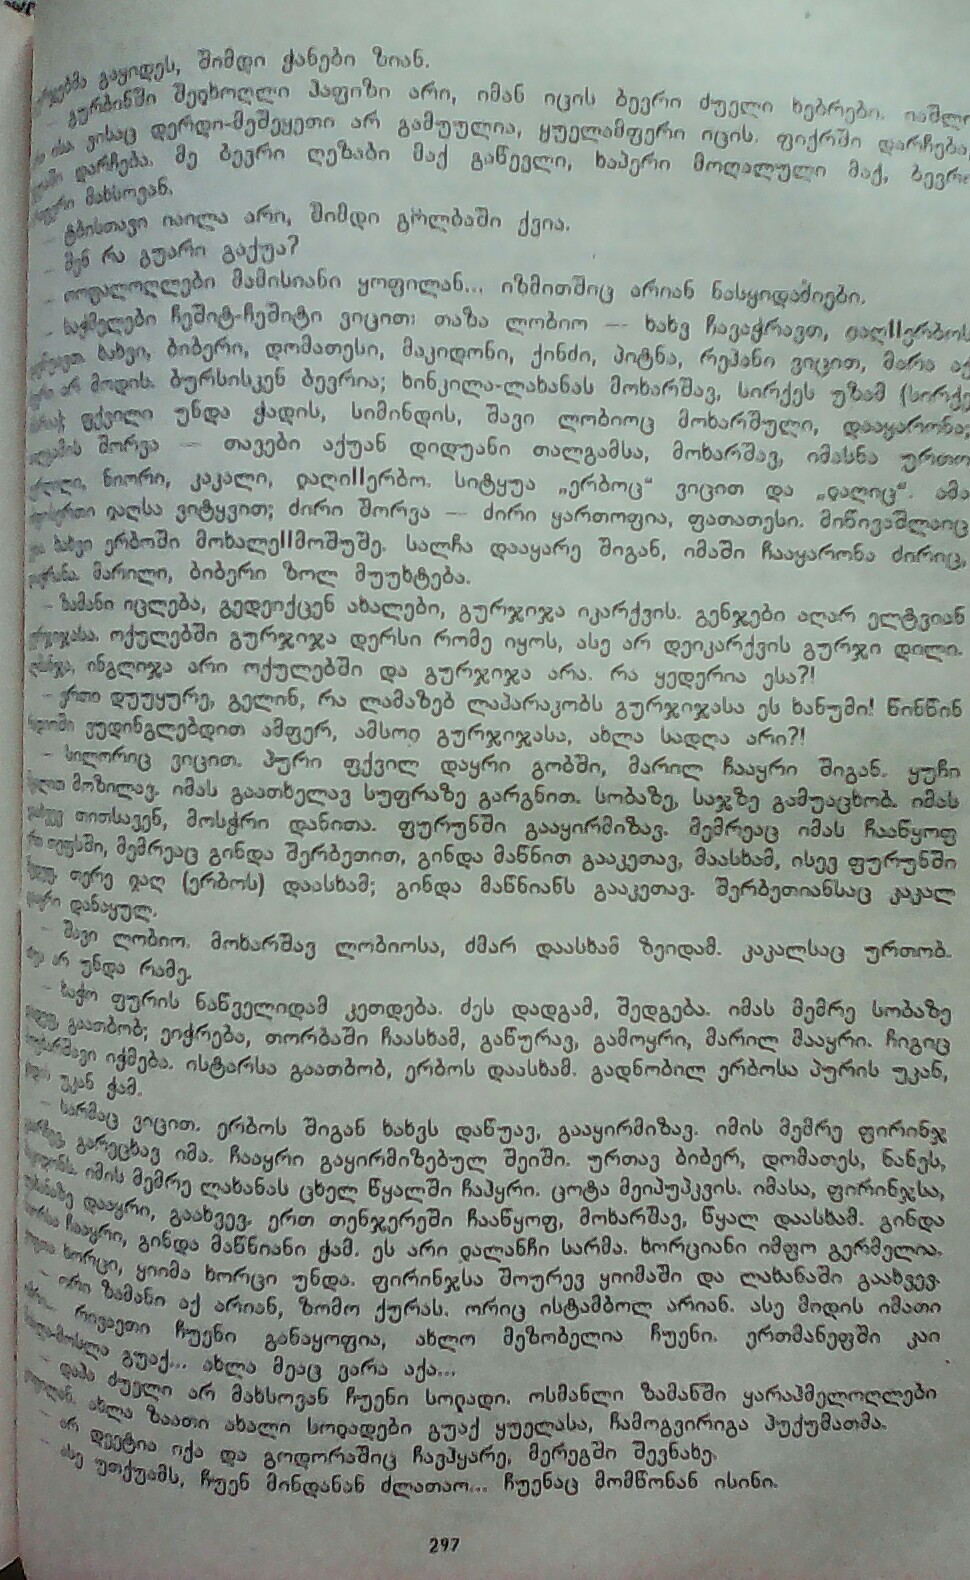 გაყიდეს, შიმდი ჭანები ზიან.
— გურბინში შედხოღლი ჰაფიზი არი, იმან იცის ბევრი ძუელი ხებრები.
ისა ვისაც დერდი-მეშეყეთი არ გამუულია, ყუელამფერი იცის. ფიქრში დარჩება,
დარჩება. მე ბევრი ღეზაბი მაქ გაწევლი, ხაპერი მოღალული მაქ, ბევრი
მახსოვან.
— ტბისთავი იაილა არი, შიმდი გოლბაში ქვია.
— შენ რა გუარი გაქუა?
— მამისიანი ყოფილან... იზმითშიც არიან ნასყიდაძიები.
— საჭმელები ჩეშიტ-ჩეშიტი ვიცით: თაზა ლობიო — ხახვ ჩავაჭრავთ, იაღ||ერბოს
ხახვი, ბიბერი, დომათესი, მაკიდონი, ქინძი, პიტნა, რეჰანი ვიცით, მარა აქ
არ მოდის. ბურსისკენ ბევრია; ხინკილა-ლახანას მოხარშავ, სირქეს უზამ (სირქე
ფქვილი უნდა ჭადის, სიმინდის, შავი ლობიოც მოხარშული, დააყარონა;
შორვა — თავები აქუან დიდუანი თალგამსა, მოხარშავ, იმასნა ურთო
ნიორი, კაკალი, იაღი||ერბო. სიტყუა „ერბოც“ ვიცით და „იაღიც“. ამა
იაღსა ვიტყვით; ძირი შორვა — ძირი ყართოფია, ფათათესი. მიწივაშლაიც
და ხახვი ერბოში მოხალე||მოშუშე. სალჩა დააყარე შიგან, იმაში ჩააყარონა ძირიც,
მარილი, ბიბერი ზოლ მუუხტება.
— ზამანი იცლება, გედეიქცენ ახალები, გურჯიჯა იკარქვის. გენჯები აღარ ელტვიან
გურჯიჯასა. ოქულებში გურჯიჯა დერსი რომე იყოს, ასე არ დეიკარქვის გურჯი დილი.
ინგლიჯა არი ოქულებში და გურჯიჯა არა. რა ყედერია ესა?!
— ერთი დუუყურე, გელინ, რა ლამაზებ ლაპარაკობს გურჯიჯასა ეს ხანუმი! წინწინ
ვუდინგლებდით ამფერ, ამსოი გურჯიჯასა, ახლა სადღა არი?!
— სილორიც ვიცით. პური ფქვილ დაყრი გობში, მარილ ჩააყრი შიგან. ყუჩი
მოზილავ. იმას გაათხელავ სუფრაზე გარგნით. სობაზე, საჯზე გამუაცხობ. იმას
თითსავენ, მოსჭრი დანითა. ფურუნში გააყირმიზავ. მემრეაც იმას ჩააწყოფ
მემრეაც გინდა შერბეთით, გინდა მაწნით გააკეთავ, მაასხამ, ისევ ფურუნში
თერე იაღ (ერბოს) დაასხამ; გინდა მაწნიანს გააკეთავ. შერბეთიანსაც კაკალ
დანაყულ.
— შავი ლობიო. მოხარშავ ლობიოსა, ძმარ დაასხამ ზეიდამ. კაკალსაც ურთობ.
არ უნდა რამე.
— ხაჭო ფურის ნაწველიდამ კეთდება. ძეს დადგამ, შედგება. იმას მემრე სობაზე
გაათბობ; ეიჭრება, თორბაში ჩაასხამ, გაწურავ, გამოყრი, მარილ მააყრი. ჩიგიც
იქმება. ისტარსა გაათბობ, ერბოს დაასხამ. გადნობილ ერბოსა პურის უკან,
უკან ჭამ.
— სარმაც ვიცით. ერბოს შიგან ხახვს დაწუავ, გააყირმიზავ. იმის მემრე ფირინჯ
გარეცხავ იმა. ჩააყრი გაყირმიზებულ შეიში. ურთავ ბიბერ, დომათეს, ნანეს,
იმის მემრე ლახანას ცხელ წყალში ჩაჰყრი. ცოტა მეიპუპკვის. იმასა, ფირინჯსა,
დააყრი, გაახვევ. ერთ თენჯერეში ჩააწყოფ, მოხარშავ, წყალ დაასხამ. გინდა
ჩააყრი, გინდა მაწნიანი ჭამ. ეს არი იალანჩი სარმა. ხორციანი იმფო გერმელია.
ხორცი, ყიიმა ხორცი უნდა. ფირინჯსა შოურევ ყიიმაში და ლახანაში გაახვევ.
— ორი ზამანი აქ არიან, ზომო ქურას. ორიც ისტამბოლ არიან. ასე მიდის იმათი
რივაეთი ჩუენი განაყოფია, ახლო მეზობელია ჩუენი. ერთმანეფში კაი
გუაქ... ახლა მეაც ვარა აქა...
— დაჰა ძუელი არ მახსოვან ჩუენი სოიადი. ოსმანლი ზამანში ყარაჰმელოღლები
ახლა ზაათი ახალი სოიადები გუაქ ყუელასა, ჩამოგვირიგა ჰუქუმათმა.
— არ დეეტია იქა და გოდორაშიც ჩავჰყარე, მერეგში შევნახე.
— ასე უთქუამს, ჩუენ მინდანან ძლათაო... ჩუენაც მომწონან ისინი.
297